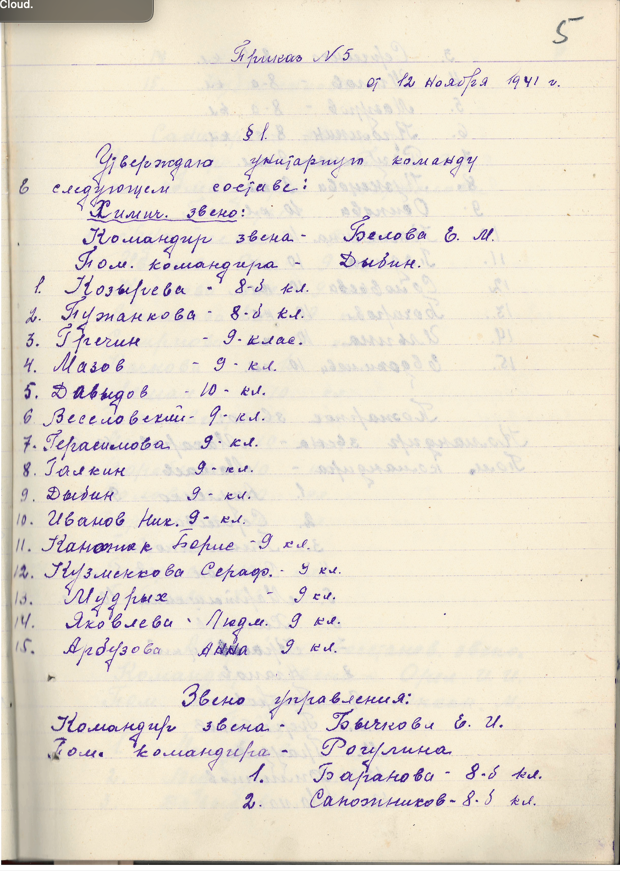 Cloud.
5
Приказ N 5
от 12 ноября 1941 г.
§ 1.
Утверждаю унитарную команду
в следующем составе:
Химич. звено:
Командир звена - Белова Е. М.
Пом. командира - Дыбин.
1. Козырева - 8-б кл.
2. Пужанкова - 8-б кл.
3. Гречин - 9-клас.
4. Мазов - 9-кл.
5. Давыдов - 10-кл.
6 Веселовский - 9-кл.
7. Герасимова 9-кл.
8. Галкин 9-кл.
9. Дыбин 9-кл.
10. Иванов Ник. 9-кл.
11. Борис - 9 кл.
12. Кузменкова Сераф. - 9 кл.
13. Мудрых - 9 кл.
14. Яковлева - Людм. 9 кл.
15. Арбузова Анна 9 кл.
Звено управления:
Командир звена - Бычкова Е. И.
Пом. командира - Рогулина
1. Баранова - 8-б кл.
2. Сапожников - 8-б кл.